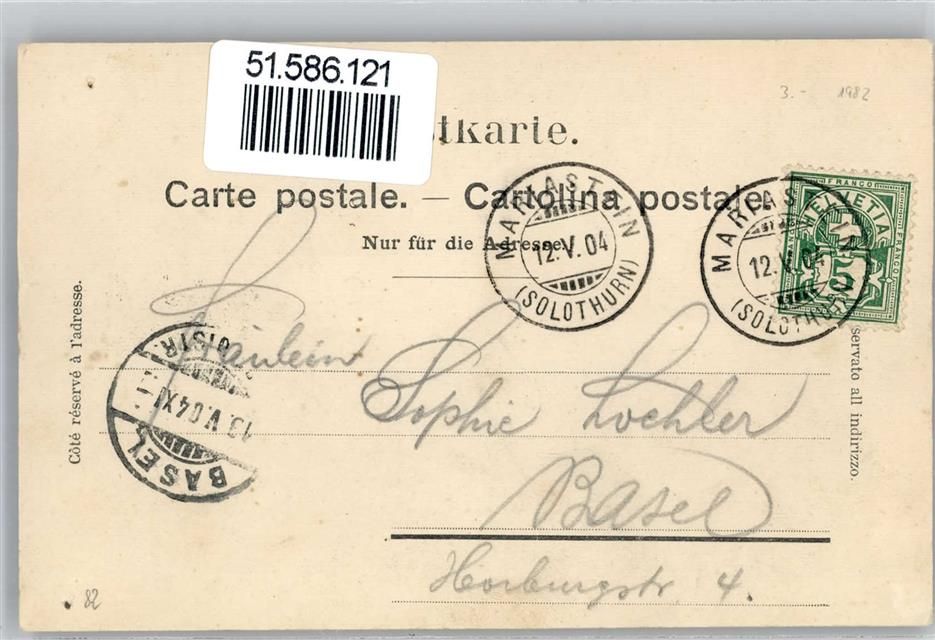 51.586.121
3.- 1982
tkarte.
Carte postale. — Cartolina postale.
Nur für die Adresse.
MARIASTEIN
12.V.04
(SOLOTHURN)
MARIASTEIN
12.V.04
(SOLOTHURN)
FRANCO
HELVETIA
FRANCO
5
Côté réservé à l'adresse.
servato all indirizzo.
BASEL
13.V.04 XI
DISTR.
Fräulein
Sophie Lochler
Basel
Horburgstr 4.
82